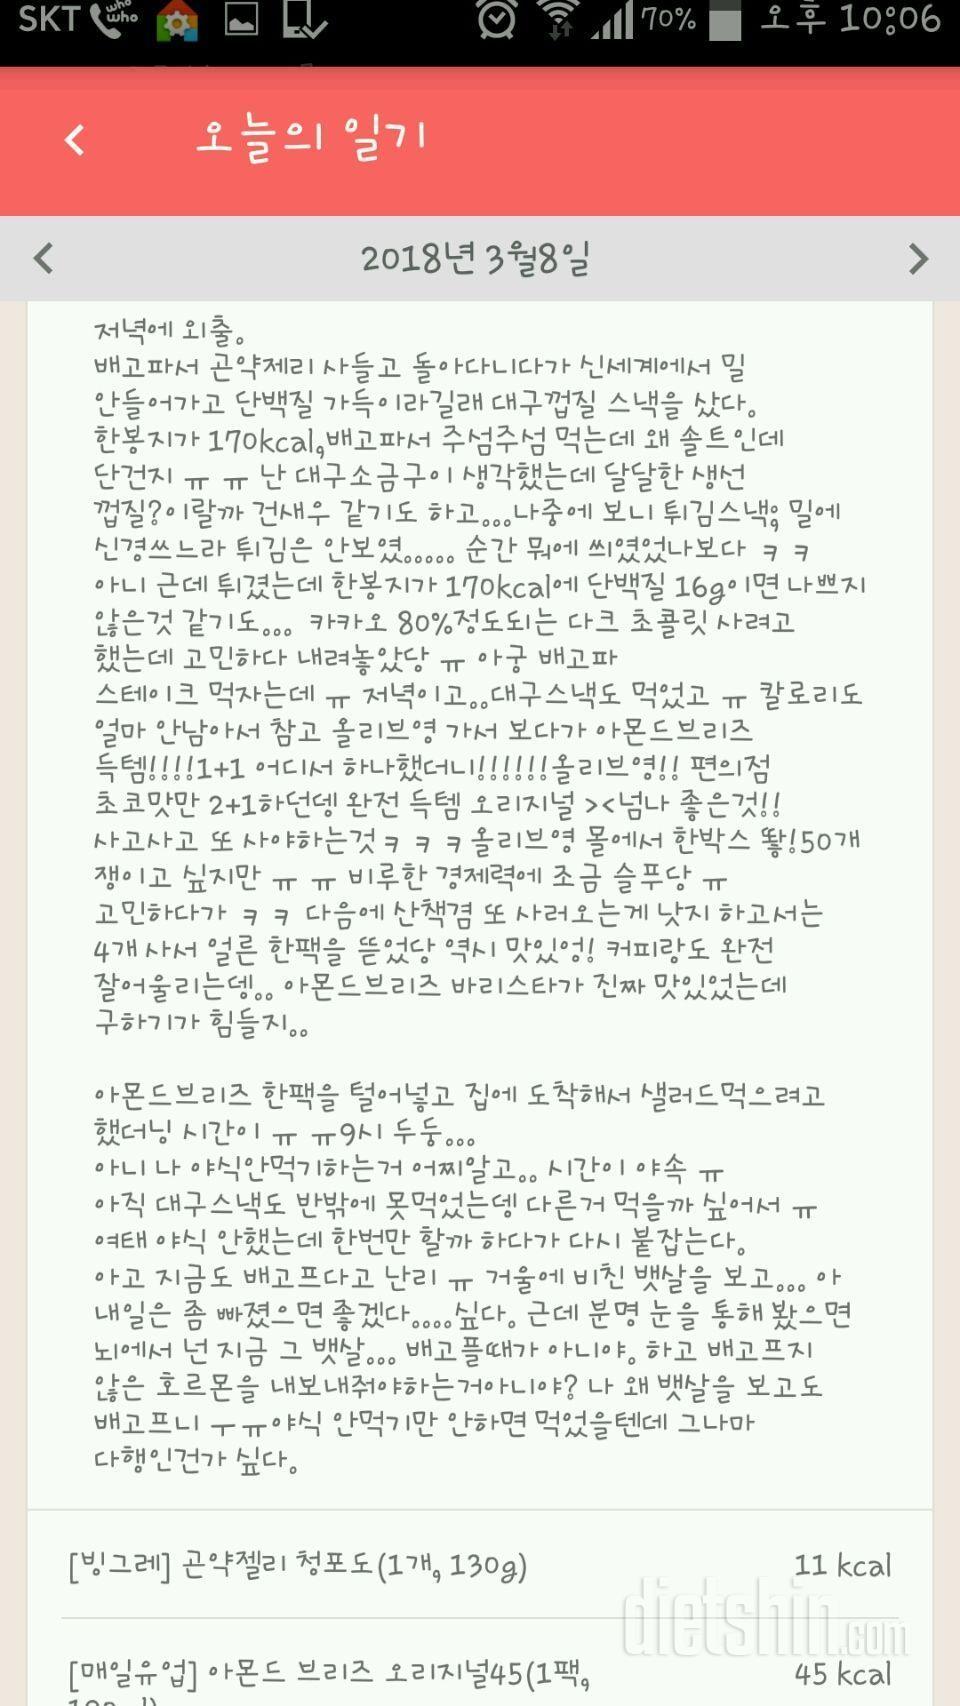 SKT who who 70% 오후 10:06
오늘의 일기
2018년 3월8일
저녁에 외출。
배고파서 곤약제리 사들고 돌아다니다가 신세계에서 밀
안들어가고 단백질 가득이라길래 대구껍질 스낵을 샀다。
한봉지가 170kcal,배고파서 주섬주섬 먹는데 왜 솔트인데
단건지 ㅠ ㅠ 난 대구소금구이 생각했는데 달달한 생선
껍질?이랄까 건새우 같기도 하고...나중에 보니 튀김스낵; 밀에
신경쓰느라 튀김은 안보였..... 순간 뭐에 씌였었나보다 ㅋ ㅋ
아니 근데 튀겼는데 한봉지가 170kcal에 단백질 16g이면 나쁘지
않은것 같기도... 카카오 80%정도되는 다크 초콜릿 사려고
했는데 고민하다 내려놓았당 ㅠ 아궁 배고파
스테이크 먹자는데 ㅠ 저녁이고..대구스낵도 먹었고 ㅠ 칼로리도
얼마 안남아서 참고 올리브영 가서 보다가 아몬드브리즈
득템!!!!1+1 어디서 하나했더니!!!!!!올리브영!! 편의점
초코맛만 2+1하던뎅 완전 득템 오리지널 ><넘나 좋은것!!
사고사고 또 사야하는것ㅋ ㅋ ㅋ올리브영 몰에서 한박스 똻!50개
쟁이고 싶지만 ㅠ ㅠ 비루한 경제력에 조금 슬푸당 ㅠ
고민하다가 ㅋ ㅋ 다음에 산책겸 또 사러오는게 낫지 하고서는
4개사서 얼른 한팩을 뜯었당 역시 맛있엉! 커피랑도 완전
잘어울리는뎅.. 아몬드브리즈 바리스타가 진짜 맛있었는데
구하기가 힘들지..
아몬드브리즈 한팩을 털어넣고 집에 도착해서 샐러드먹으려고
했더닝 시간이 ㅠ ㅠ9시 두둥...
아니 나 야식안먹기하는거 어찌알고.. 시간이 야속 ㅠ
아직 대구스낵도 반밖에 못먹었는뎅 다른거 먹을까 싶어서 ㅠ
여태 야식 안했는데 한번만 할까 하다가 다시 붙잡는다。
아고 지금도 배고프다고 난리 ㅠ 거울에 비친 뱃살을 보고... 아
내일은 좀 빠졌으면 좋겠다....싶다。 근데 분명 눈을 통해 봤으면
뇌에서 넌 지금 그 뱃살... 배고플때가 아니야。 하고 배고프지
않은 호르몬을 내보내줘야하는거아니야? 나 왜 뱃살을 보고도
배고프니 ㅜㅠ야식 안먹기만 안하면 먹었을텐데 그나마
다행인건가 싶다。
[빙그레] 곤약젤리 청포도(1개, 130g) 11 kcal
dietshin.com
[매일유업] 아몬드 브리즈 오리지널45(1팩, 45 kcal